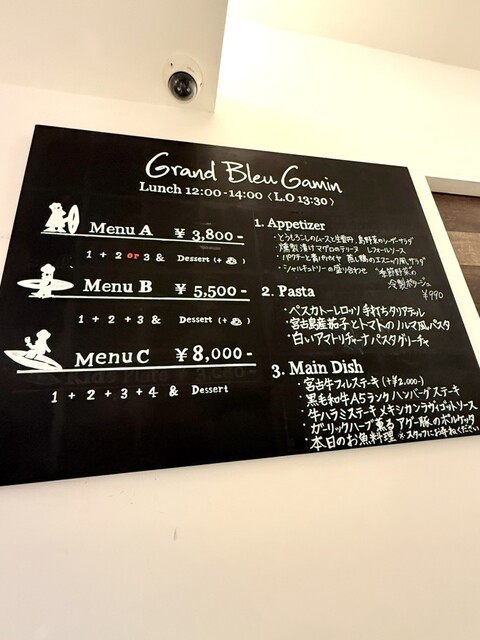 Grand Bleu Gamin
Lunch 12:00-14:00 〈L.O 13:30〉
Menu A ¥ 3,800-
1 + 2 or 3 & Dessert (+ )
Menu B ¥ 5,500-
1 + 2 + 3 & Dessert (+ )
Menu C ¥ 8,000-
1 + 2 + 3 + 4 & Dessert
1. Appetizer
・とうもろこしのムースと生雲丹 島野菜のシーザーサラダ
・燻製漬けマグロのテリーヌ レフォールソース
・パクチーと青パパイヤ 蒸し鶏のエスニック風サラダ
・シャルキュトリーの盛り合わせ
季節野菜の
冷製ポタージュ
¥990
2. Pasta
・ペスカトーレロッソ 手打ちタリアテッレ
・宮古島産茄子とトマトのノルマ風パスタ
・白いアマトリチャーナ パスタグリーチャ
3. Main Dish
・宮古牛フィレステキ (+¥2,000-)
・黒毛和牛A5ランク ハンバーグステキ
・牛ハラミステキ メキシカンラヴィゴットソース
・ガーリックハーブ薫る アグー豚のポルケッタ
・本日のお魚料理 ※スタッフにお尋ねください